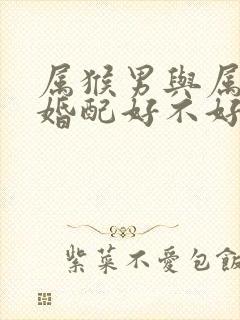 属猴男與属
婚配好不好
紫菜不愛包飯